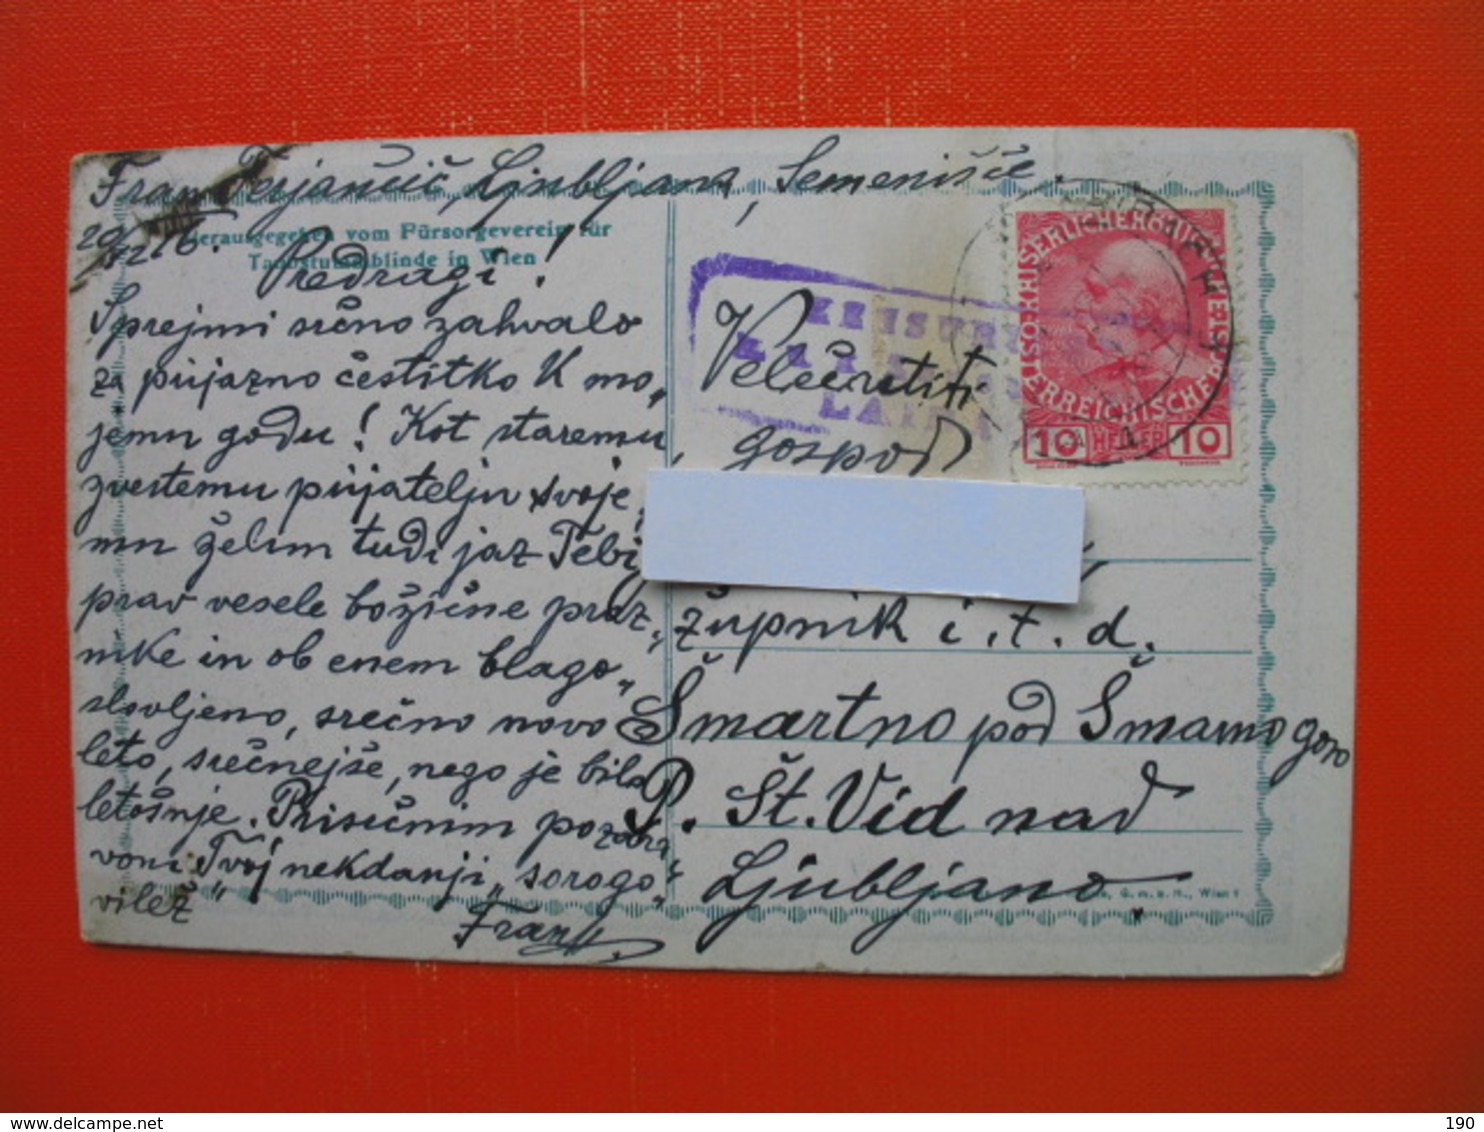 Fran Terjančič, Ljubljana, Semenišče.
20/12 16.
Herausgegeben vom Fürsorgeverein für
Taubstummblinde in Wien
Predragi!
Sprejmi srčno zahvalo
za prijazno čestitko k mo„
jemu godu! Kot staremu,
zvestemu prijatelju svoje„
mu želim tudi jaz Tebi
prav vesele božične praz„
nike in obenem blago„
slovljeno, srečno novo
leto, srečnejše, nego je bilo
letošnje. Prisrčnim pozdra„
vom Tvoj nekdanji „sorogo„
vilež"
Fran
ZENSUR
LAI
Velečastiti
gospod
župnik i. t. d.
Šmartno pod Šmarno goro
P. Št. Vid nad
Ljubljano.
KAISERLICHE KÖNIGLICHE
ÖSTERREICHISCHE POST
10 HELLER 10
G. m. b. H., Wien
delcampe.net
190